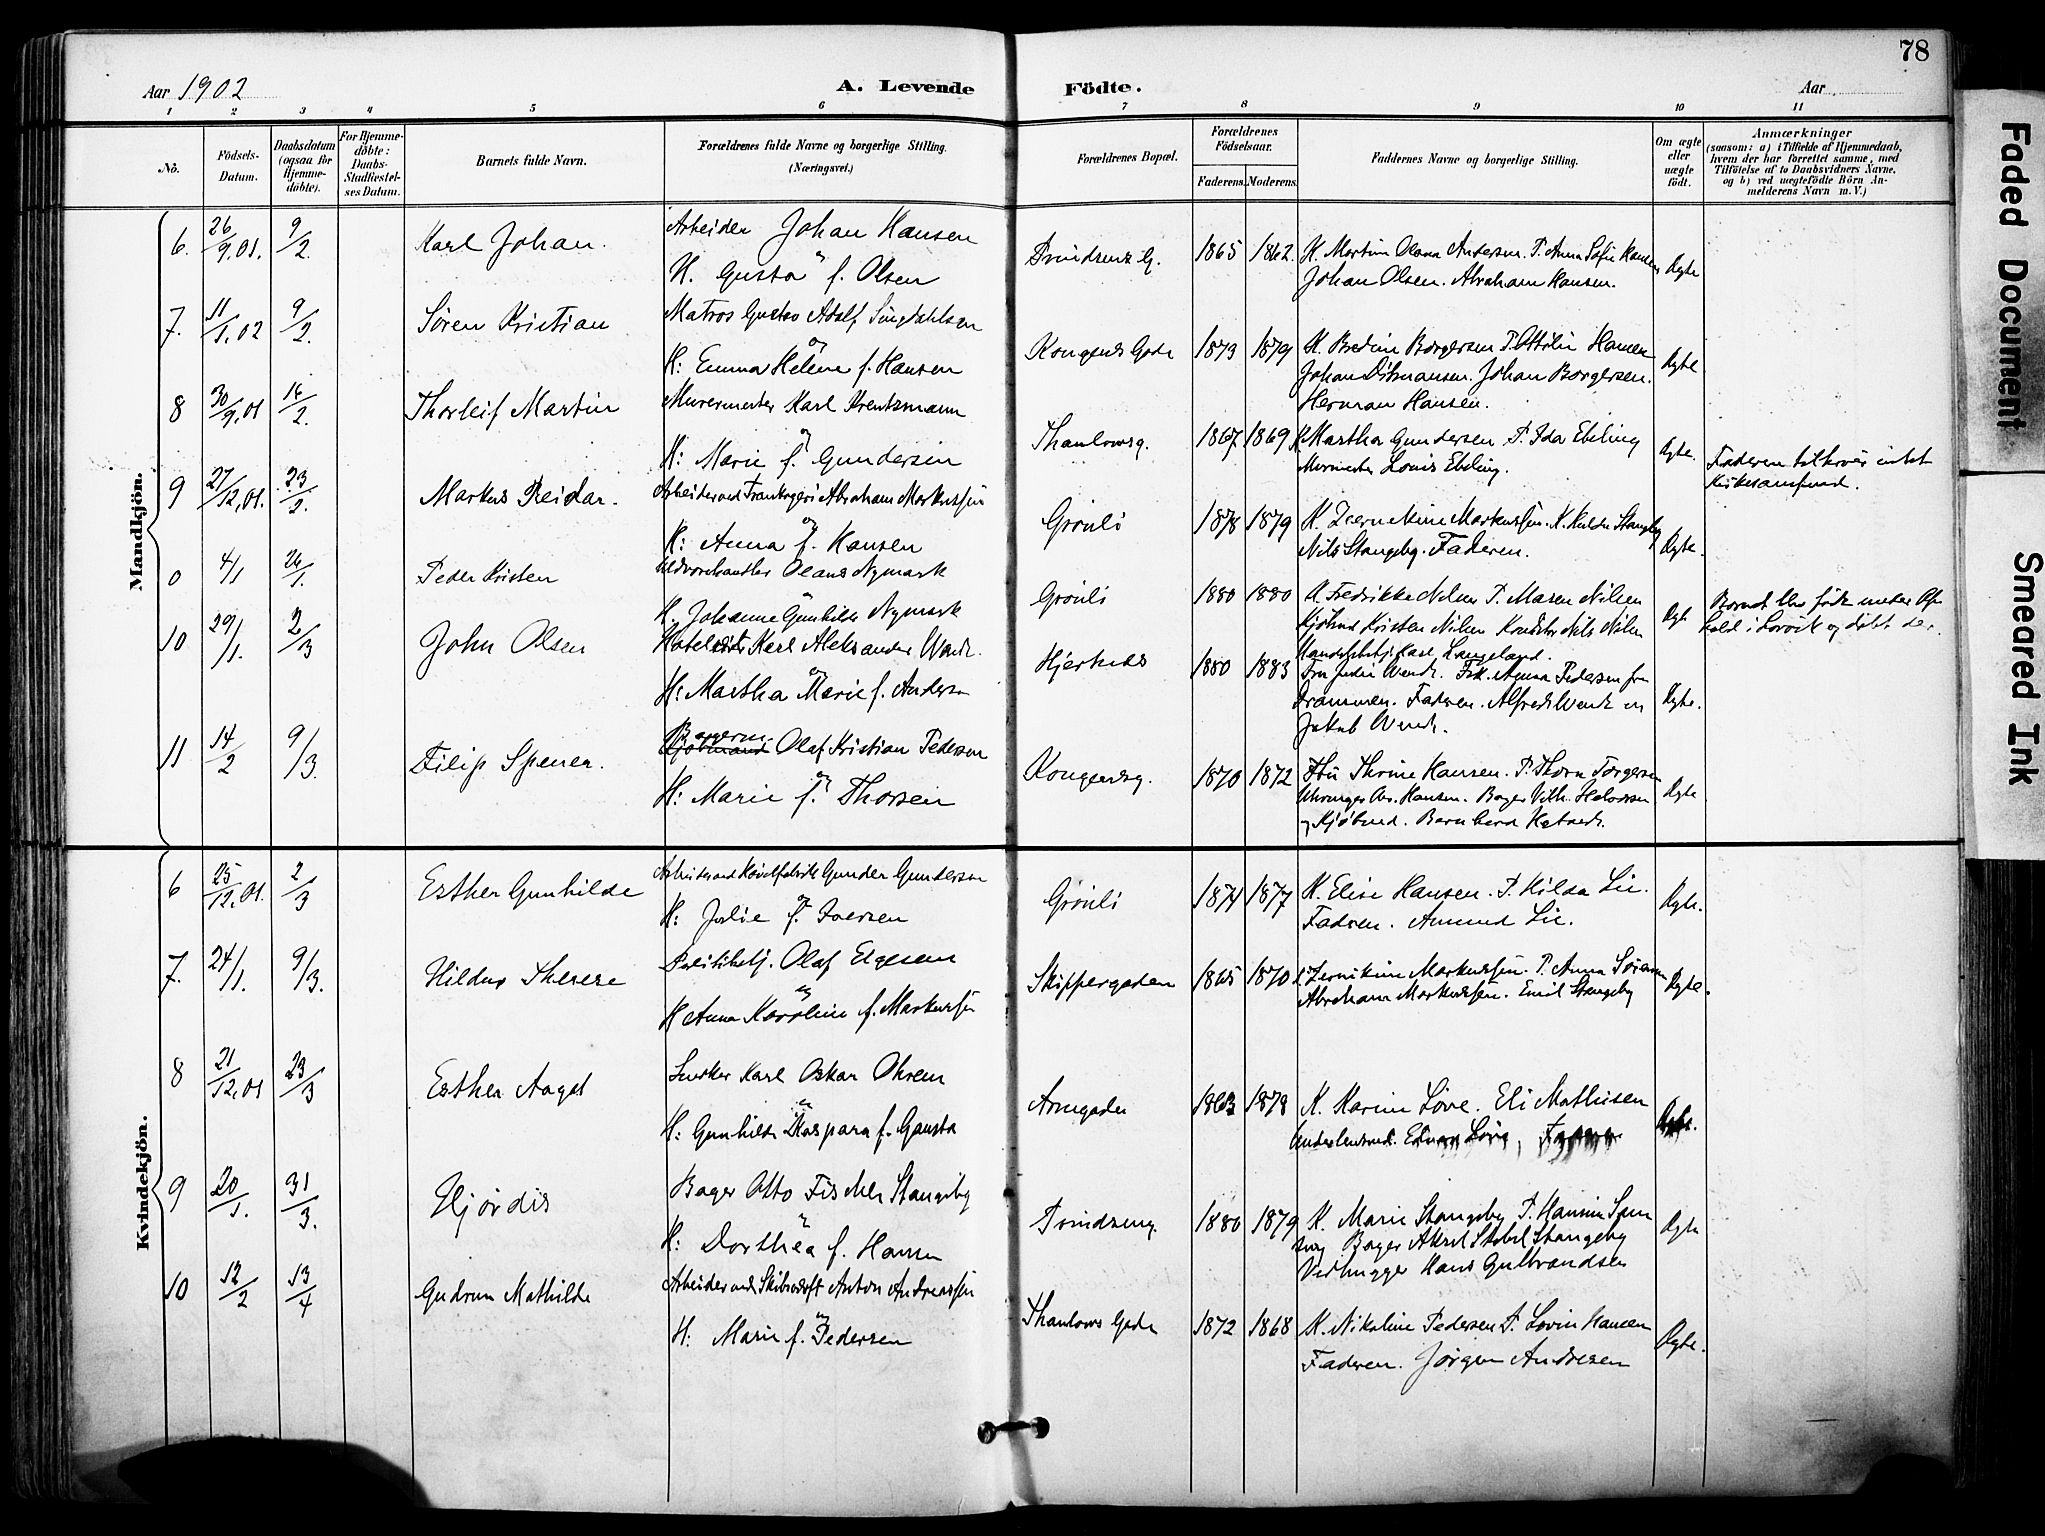 78
Aar 1902
A. Levende
Födte.
Aar
1 2 3 4 5 6 7 8 9 10 11
No.
Födsels-Datum.
Daabsdatum (ogsaa for Hjemme-döbte).
For Hjemme-döbte: Daabs-Stadfæstel-ses Datum.
Barnets fulde Navn.
Forældrenes fulde Navne og borgerlige Stilling. (Næringsvei.)
Forældrenes Bopæl.
Forældrenes Födselsaar.
Faderens.
Moderens.
Faddernes Navne og borgerlige Stilling.
Om ægte eller uægte födt.
Anmærkninger
(saasom: a) i Tilfælde af Hjemmedaab,
hvem der har forrettet samme, med
Tilföielse af to Daabsvidners Navne,
og b) ved uægtefödte Börn An-
melderens Navn m. V.)
Mandkjön.
6. 26/9.01. 9/2. Karl Johan. Arbeider Johan Hansen
H. Gusta f. Olsen
1865 1862. K. Martine Andersen. P. Anna Sofie Hansen Ægte
Johan Olsen. Abraham Hansen.
7. 11/1.02 9/2. Søren Kristian Matros Gustav Adolf
og
H: Emma Helene f. Hansen
Kongens Gade 1873 1879 K. Bredine Borgersen P. Othilie Hansen Ægte
Johan Johan Borgersen.
Herman Hansen.
8 30/9.01 16/2. Thorleif Martin Murermester Karl Krentzmann
og
H: Marie f. Gundersen
Thaulowsg. 1867 1869 K Martha Gundersen P. Ida Ebeling Ægte.
Murmester Louis Ebeling.
Faderen tilhører intet
9 27/12.01. 23/2. Markus Reidar. Arbeider ved Abraham Markussen
og
H: Anna f. Hansen
Grønli 1878 1879 K. Markussen. K. Hulda Stangeby Ægte.
Nils Stangeby. Faderen.
0 4/1 26/1. Peder Kristen Olaus Nymark
H. Johanne Gunhilde Nymark
Grønli 1880 1880 K. Fredrikke Nilsen P. Maren Nilsen Ægte
Kjøbmd Kristen Nilsen Nils Nilsen
Karl Langeland.
Barnet blev født under Op-
hold i Larvik og døbt der.
10 29/1. 2/3 John Olsen Karl Aleksander Wendt.
og
H: Martha Marie f. Andersen
Hjertnes 1880 1883 Fru Julie Wendt. Frk. Anna Pedersen fra Ægte.
Drammen. Faderen. Alfred Wendt og
Jakob Wendt.
11 14/2 9/3. Filip Spener. Kjøbmand Olaf Kristian Pedersen
og
H: Marie f. Thorsen
Kongensg. 1870 1872 Thrine Hansen. P. Thora Torgersen Ægte
Hansen. Bager Vilh. Halvorsen
og Kjøbmd.
Kvindekjön.
6 25/12.01. 2/3 Esther Gunhilde Arbeider ved Gunder Gundersen
og
H: Julie f. Iversen
Grønli 1874 1877 K. Elise Hansen. P. Hilda Lie. Ægte.
Faderen. Amund Lie.
7. 24/1. 9/3. Hildur Therese Politibetj. Olaf Elgesem
og
H Anna Karoline f. Markussen
Skippergaden 1865 1870 Markussen. P. Anna Sørensen Ægte.
Abraham Markussen. Emil Stangeby
8 21/12.01 23/3 Esther Aagot Snedker Karl Oskar Ohrem
og
H: Gunhilde Kaspara f. Gausta
1863 1878 K. Karine Løve. Eli Mathisen Ægte.
Løve, Faderen
9 20/1. 31/3. Hjørdis Bager Otto Fischer Stangeby
og
H: Dorthea f. Hansen
1880 1879 K. Marie Stangeby P. Ægte
Bager Aksel Stangeby
Vedhugger Hans Gulbrandsen
10 12/2 13/4 Gudrun Mathilde Arbeider ved Skibsværft Anton Andreassen
og
H: Marie f. Pedersen
Thaulows Gade 1872 1868 K. Nikoline Pedersen P. Lovise Hansen Ægte.
Faderen. Jørgen Andresen
Faded Document
Smeared Ink